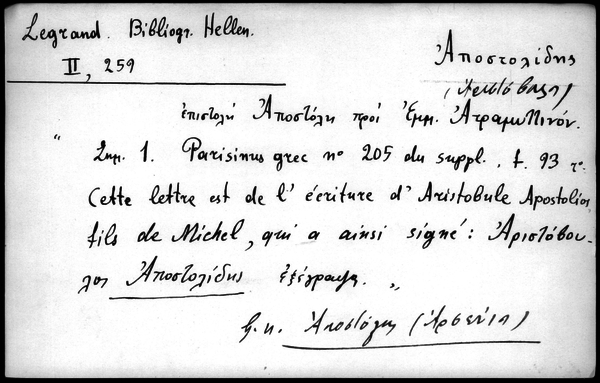 Legrand. Bibliogr. Hellen.
II, 259
Ἀποστολίδης
(Ἀριστόβουλος)
ἐπιστολή Ἀποστόλη πρὸς Ἐμμ. Ἀτραμυττινόν.
" Σημ. 1. Parisinus grec nº 205 du suppl., f. 93 rº.
Cette lettre est de l' écriture d' Aristobule Apostolios,
fils de Michel, qui a ainsi signé: Ἀριστόβου-
λος Ἀποστολίδης ἐξέγραψε. "
Ἀποστόλης (Ἀρσένιος)